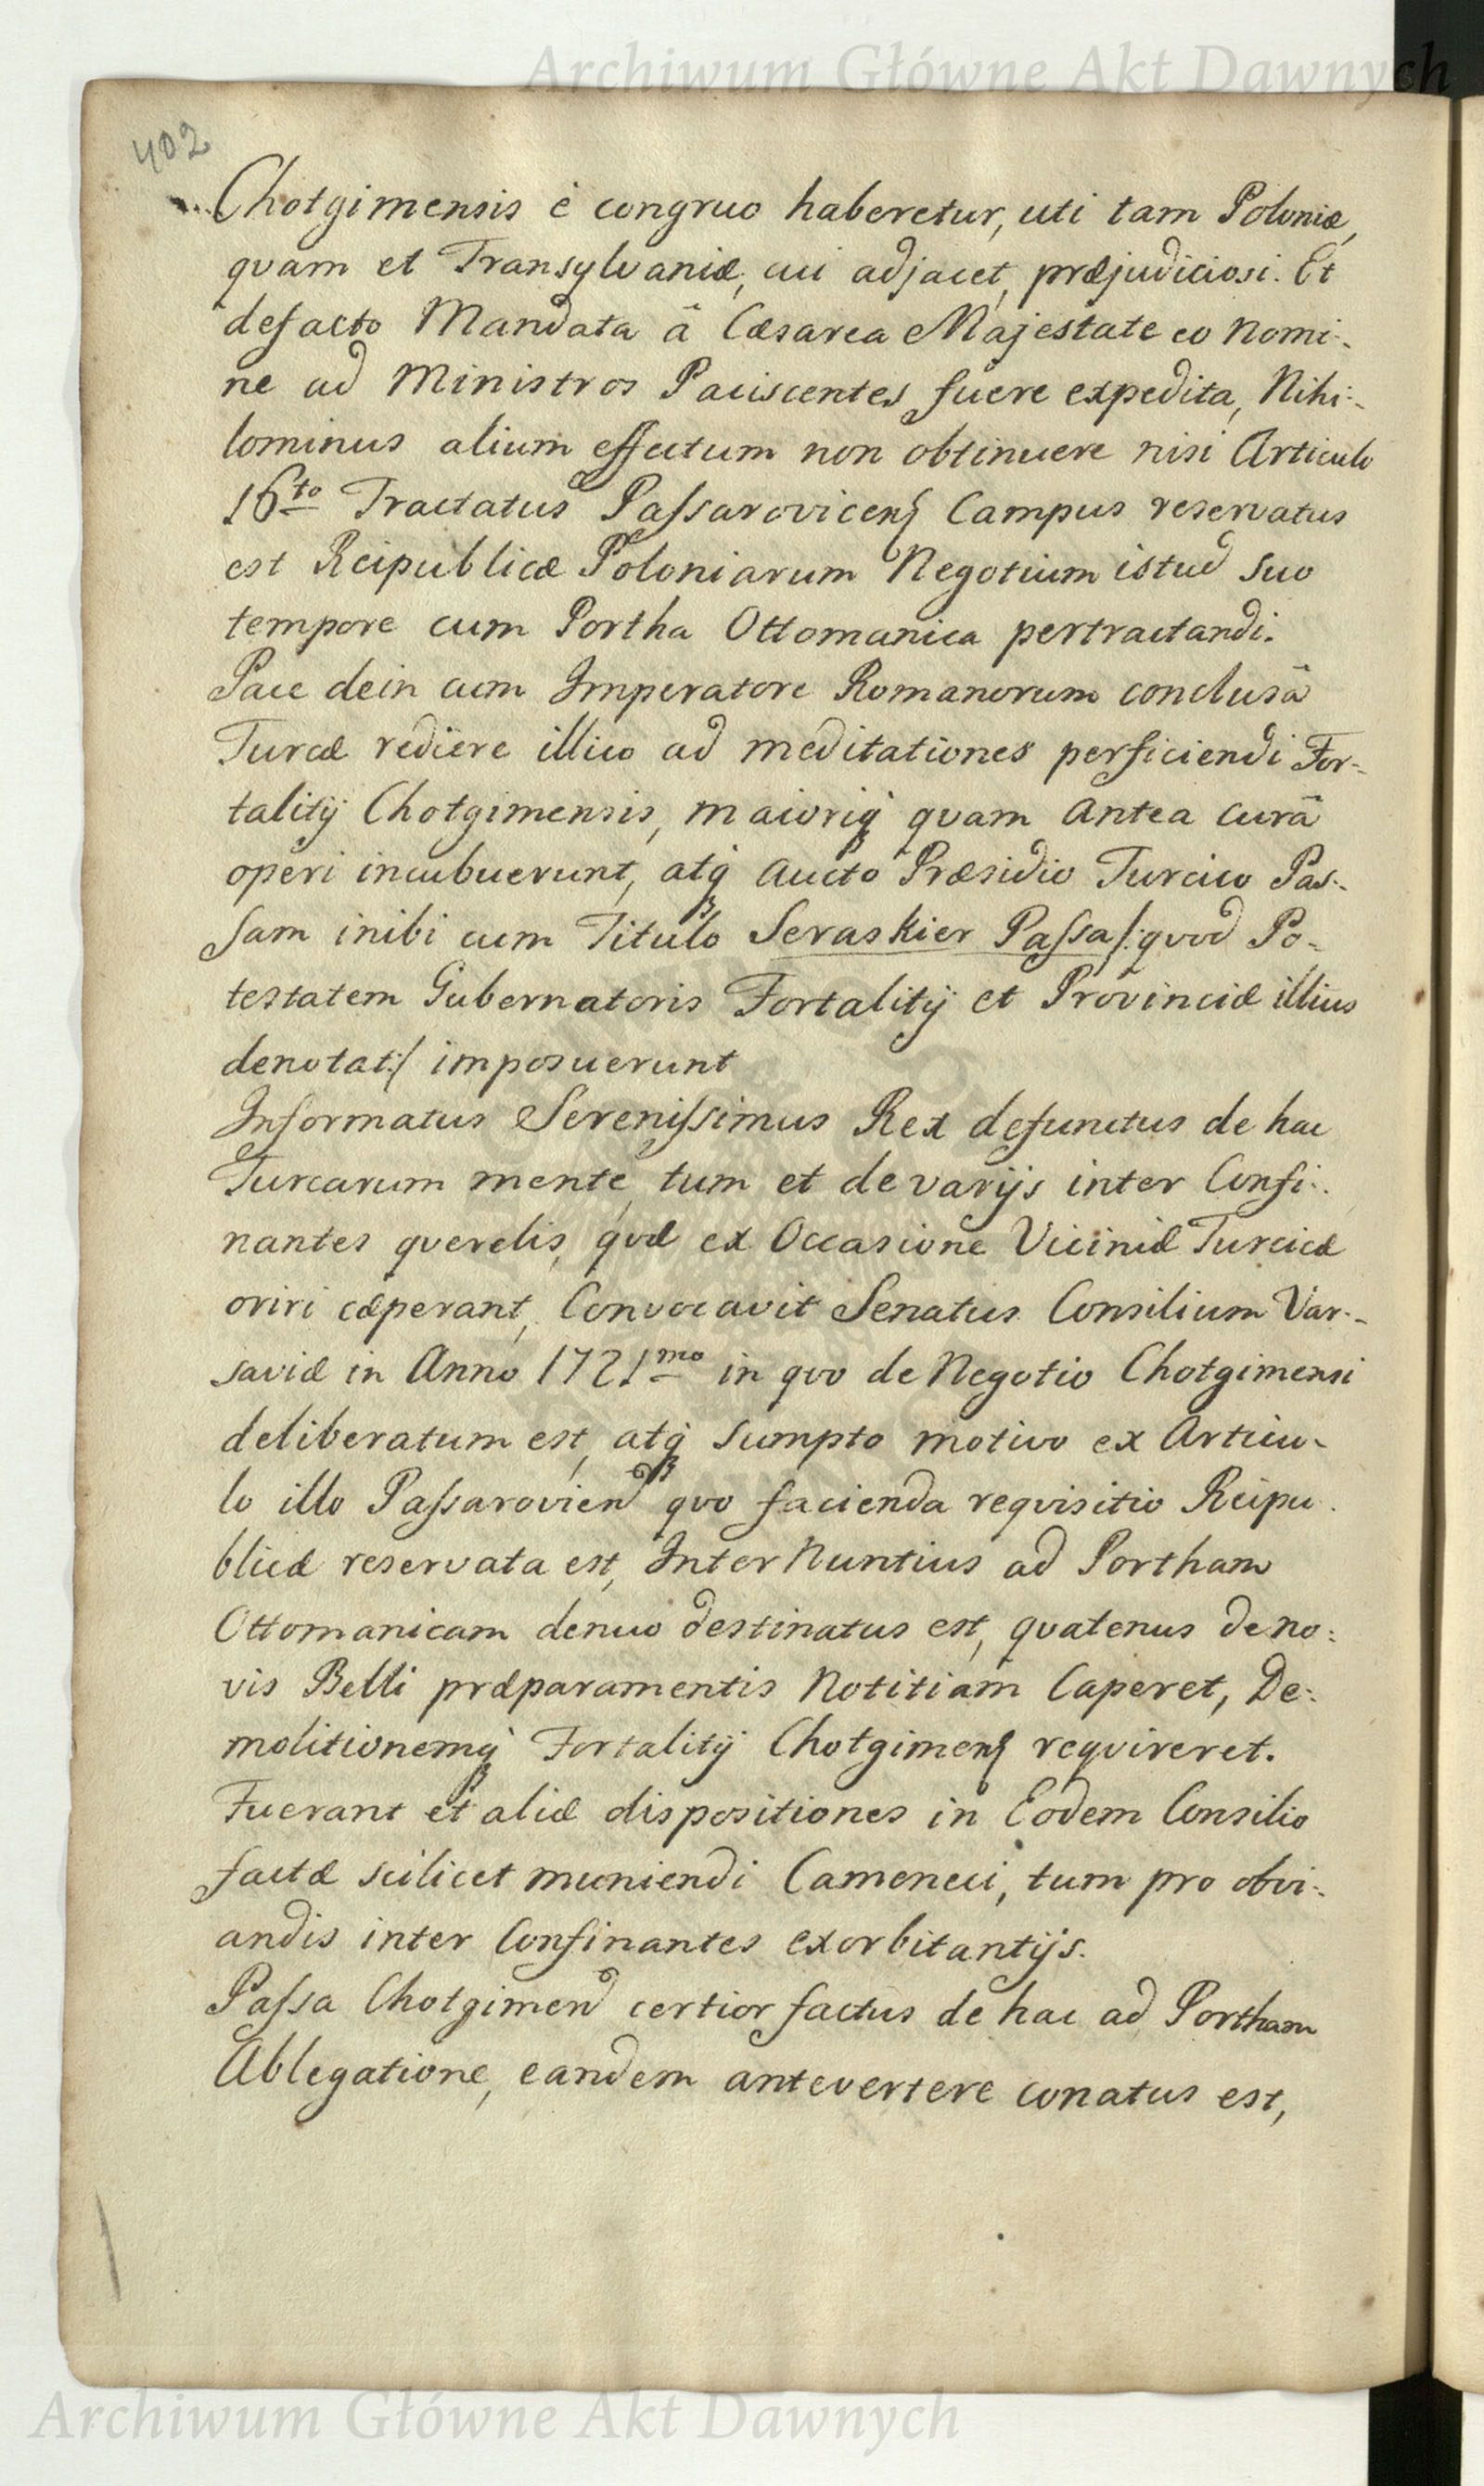 Archiwum Główne Akt Dawnych
402
Chotgimensis è congruo haberetur, uti tam Poloniæ,
quam et Transylvaniæ, cui adjacet, præjudiciosi. Et
defacto Mandata â Cæsarea Majestate eo Nomi-
ne ad Ministros Paciscentes fuere expedita, Nihi-
lominus alium effectum non obtinuere nisi Articulo
16to Tractatus Paſsarovicenſ Campus reservatus
est Reipublicæ Poloniarum Negotium istud suo
tempore cum Portha Ottomanica pertractandi.
Pace dein cum Imperatore Romanorum conclusâ
Turcæ rediere illico ad meditationes perficiendi For-
talitij Chotgimensis, maioriq́ quam Antea curâ
operi incubuerunt, atq́ Aucto Præsidio Turcico Pas-
sam inibi cum Titulo Seraskier Paſsa /: quod Po-
testatem Gubernatoris Fortalitij et Provinciæ illius
denotat :/ imposuerunt
Informatus Sereniſsimus Rex defunctus de hac
Turcarum mente, tum et de varijs inter Confi-
nantes querelis, quæ ex Occasione Viciniæ Turcicæ
oriri cæperant, Convocavit Senatus Consilium Var-
saviæ in Anno 1721mo in quo de Negotio Chotgimensi
deliberatum est, atq́ sumpto motivo ex Articu-
lo illo Paſsarovien quo facienda requisitio Reipu-
blicæ reservata est, InterNuntius ad Portham
Ottomanicam denuo destinatus est, quatenus de no-
vis Belli præparamentis Notitiam Caperet, De-
molitionemq́ Fortalitij Chotgimenſ requireret.
Fuerant et aliæ dispositiones in Eodem Consilio
factæ scilicet muniendi Cameneci, tum pro obvi-
andis inter Confinantes exorbitantijs.
Paſsa Chotgimen certior factus de hac ad Portham
Ablegatione, eandem antevertere conatus est,
Archiwum Główne Akt Dawnych